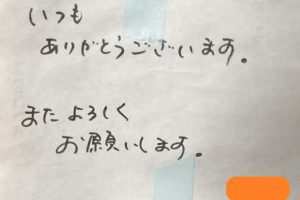 いつも
ありがとうございます。
またよろしく
お願いします。